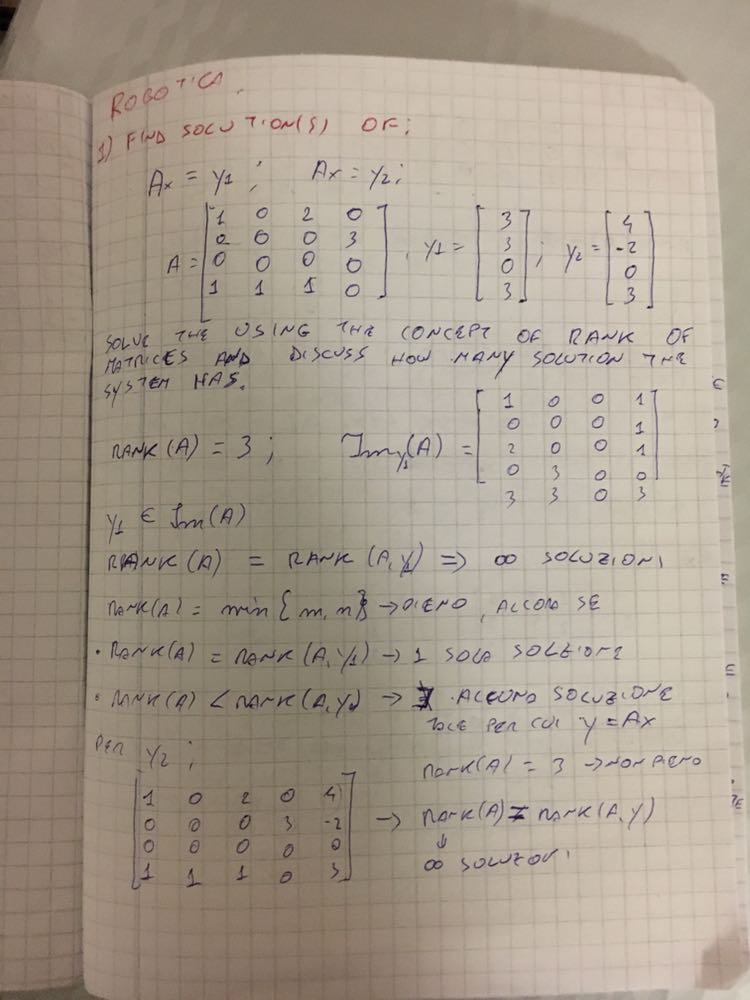 ROBOTICA.
1) FIND SOLUTION(S) OF:
Ax = y1 ; Ax = y2;
A = [1 0 2 0
0 0 0 3
0 0 0 0
1 1 1 0] , y1 = [3 3 0 3] ; y2 = [4 -2 0 3]
SOLVE THE USING THE CONCEPT OF RANK OF
MATRICES AND DISCUSS HOW MANY SOLUTION THE
SYSTEM HAS.
RANK(A) = 3 ; Im y1(A) = [1 0 0 1
0 0 0 1
2 0 0 1
0 3 0 0]
3 3 0 3
y1 ∈ Im(A)
RANK(A) = RANK(A,y1) => ∞ SOLUZIONI
RANK(A) = min{m,n} → PIENO, ALLORA SE
• RANK(A) = RANK(A,Y1) → 1 SOLA SOLUZIONE
• RANK(A) < RANK(A,Y) → ∄ ALCUNA SOLUZIONE
TALE PER CUI y = Ax
PER y2 ;
RANK(A) = 3 → NON PIENO
[1 0 2 0 4
0 0 0 3 -2
0 0 0 0 0
1 1 1 0 3] → RANK(A) = RANK(A,y)
↓
∞ SOLUZIONI